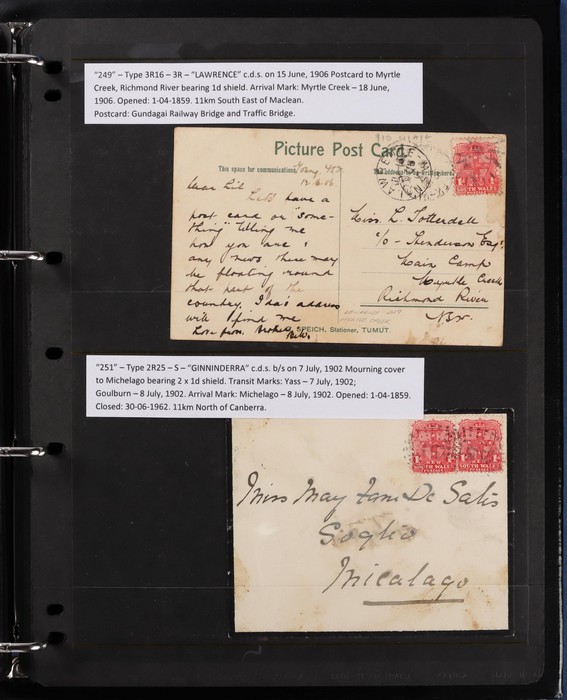 "249" – Type 3R16 – 3R – "LAWRENCE" c.d.s. on 15 June, 1906 Postcard to Myrtle
Creek, Richmond River bearing 1d shield. Arrival Mark: Myrtle Creek – 18 June,
1906. Opened: 1-04-1859. 11km South East of Maclean.
Postcard: Gundagai Railway Bridge and Traffic Bridge.
Picture Post Card.
This space for communications.
Dear Lil
Let's have a
post card or "some-
thing" telling me
how you are &
any news there may
be floating round
that part of the
country. Ida's address
will find me
Love from
Miss L. Totterdell
c/o - Henderson Esq.
Main Camp
Myrtle Creek
Richmond River
SPEICH, Stationer, TUMUT.
"251" – Type 2R25 – S – "GINNINDERRA" c.d.s. b/s on 7 July, 1902 Mourning cover
to Michelago bearing 2 x 1d shield. Transit Marks: Yass – 7 July, 1902;
Goulburn – 8 July, 1902. Arrival Mark: Michelago – 8 July, 1902. Opened: 1-04-1859.
Closed: 30-06-1962. 11km North of Canberra.
Miss May Jane De Salis
Soglio
Micalago